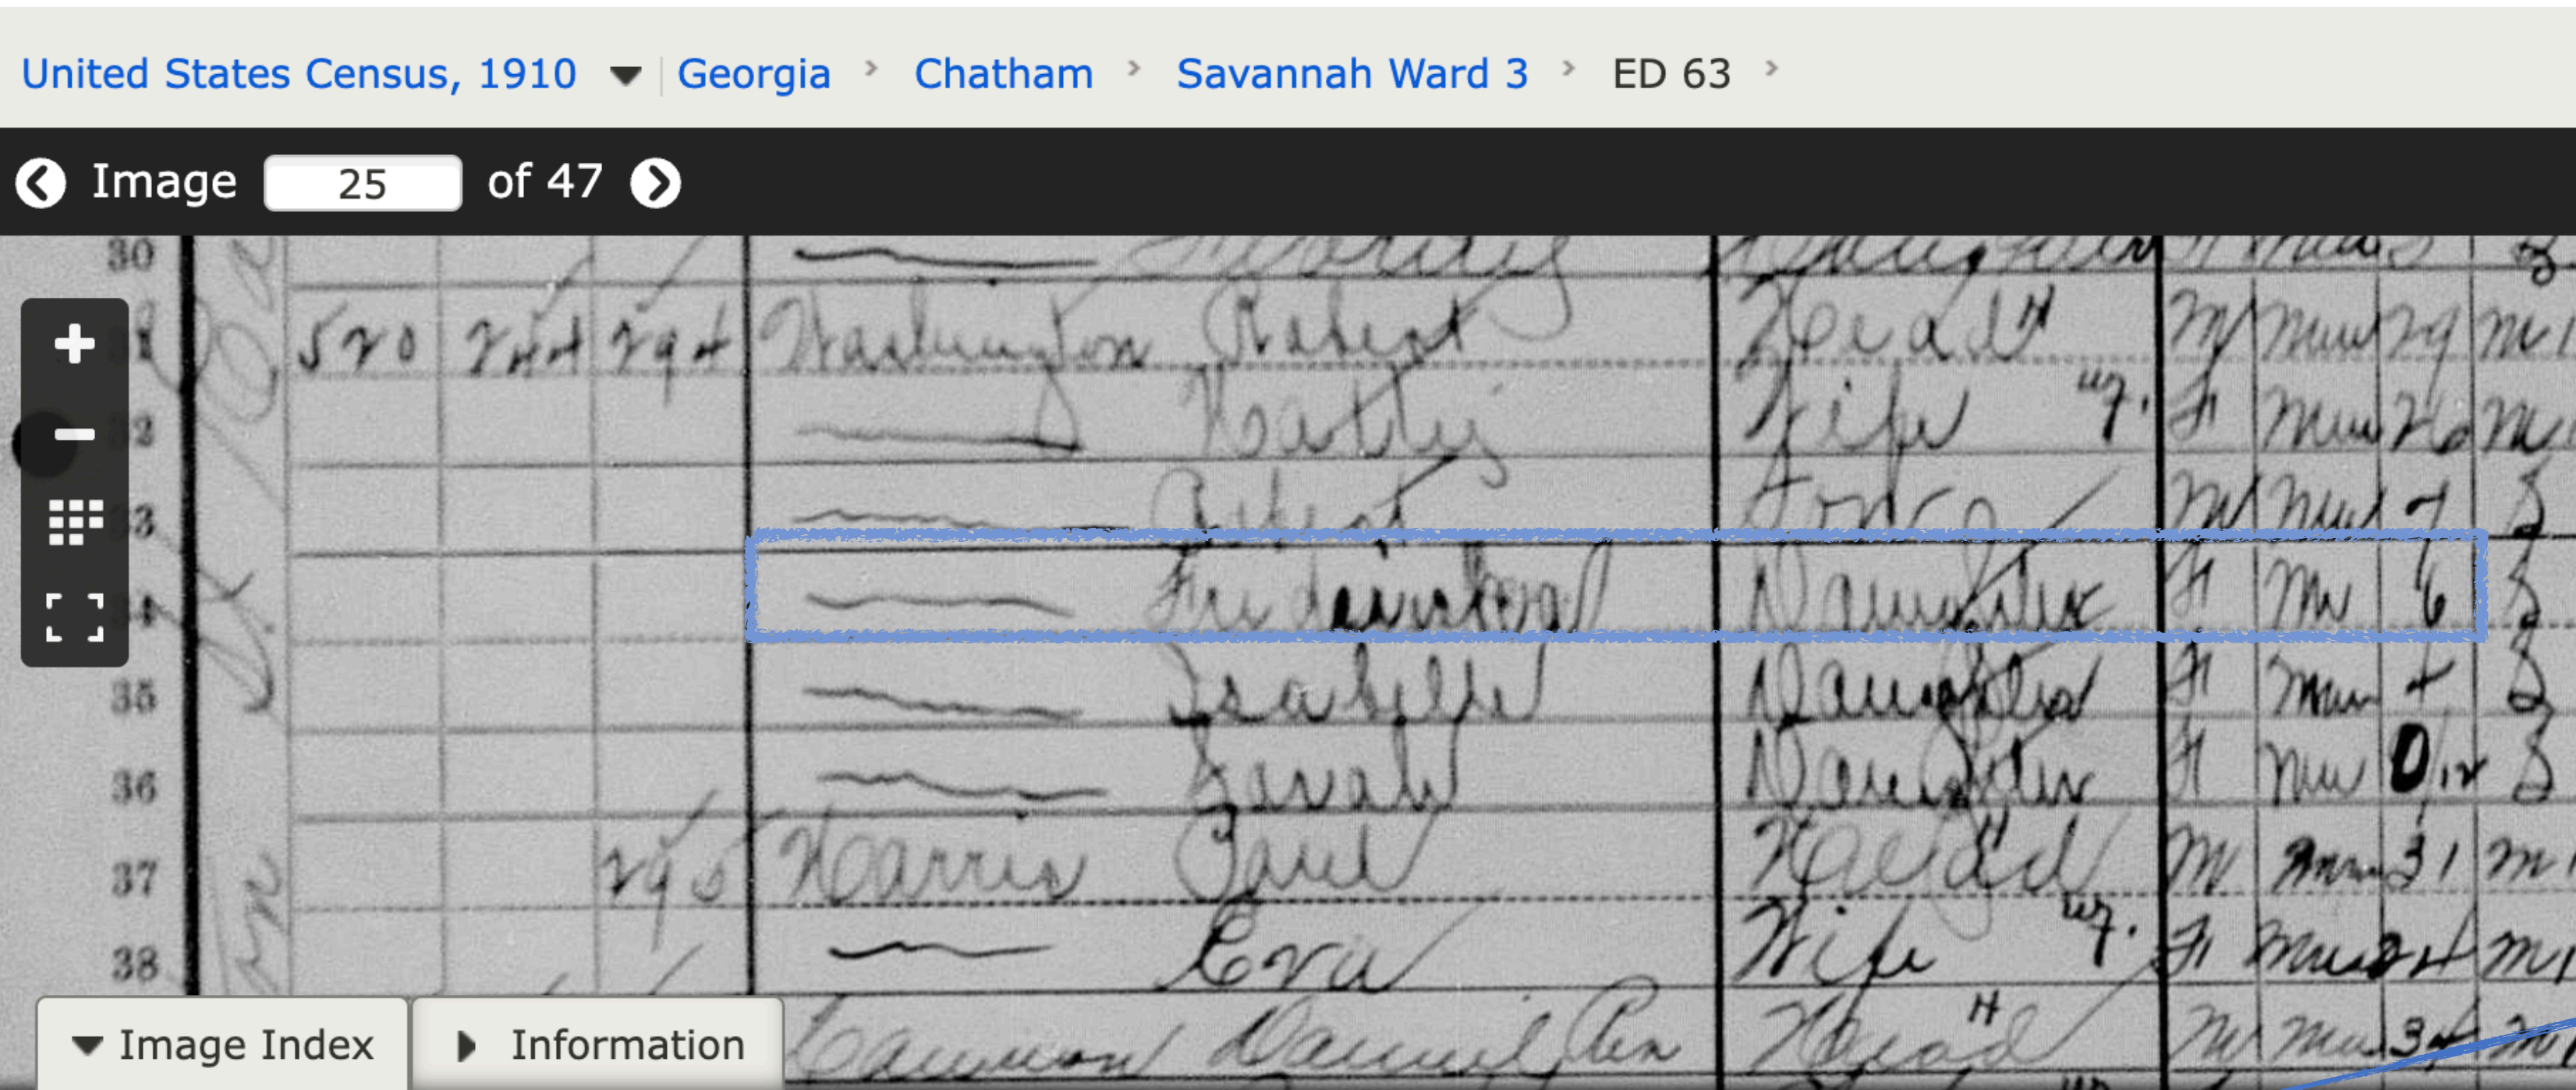 United States Census, 1910 Georgia > Chatham > Savannah Ward 3 > ED 63 >
Image 25 of 47
30
520 244 294 Washington Robert Head H M Mu 29 M1
Wife M 26 M
33 Robert M Mu 7 S
34 Daughter F Mu 6 S
35 Isabelle Daughter F Mu 4 S
36 Sarah Daughter F Mu 0/12 S
37 295 Harris Paul Head H M Mu 31 M1
38 Eva Wife F Mu 24 M1
Daniel Head H M Mu 34 M1
Image Index Information